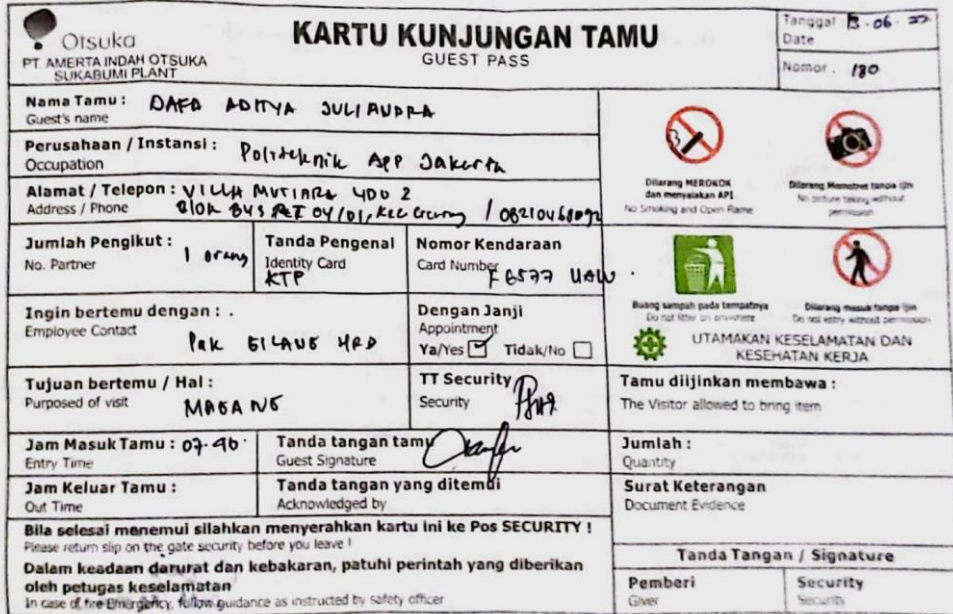 Otsuka
PT AMERTA INDAH OTSUKA
SUKABUMI PLANT
KARTU KUNJUNGAN TAMU
GUEST PASS
Tanggal 13-06-22
Date
Nomor. 180
Nama Tamu : DAFA ADITYA JULIANDRA
Guest's name
Perusahaan / Instansi : Politeknik APP Jakarta
Occupation
Alamat / Telepon : VILLA MUTIARA
Address / Phone
Jumlah Pengikut : 1 orang
No. Partner
Tanda Pengenal
Identity Card
KTP
Nomor Kendaraan
Card Number F 6577 UAW
Ingin bertemu dengan : .
Employee Contact
Pak GILANG HRD
Dengan Janji
Appointment
Ya/Yes ☑ Tidak/No ☐
Tujuan bertemu / Hal :
Purposed of visit MAGANG
TT Security
Security
Jam Masuk Tamu : 07.40
Entry Time
Tanda tangan tamu
Guest Signature
Jam Keluar Tamu :
Out Time
Tanda tangan yang ditemui
Acknowledged by
Bila selesai menemui silahkan menyerahkan kartu ini ke Pos SECURITY !
Please return slip on the gate security before you leave !
Dalam keadaan darurat dan kebakaran, patuhi perintah yang diberikan
oleh petugas keselamatan
In case of fire Emergency, follow guidance as instructed by safety officer
Dilarang MEROKOK
dan menyalakan API
No Smoking and Open Flame
Dilarang Memotret tanpa ijin
No picture taking without
permission
Buang sampah pada tempatnya
Do not litter on anywhere
Dilarang masuk tanpa ijin
Do not entry without permission
UTAMAKAN KESELAMATAN DAN
KESEHATAN KERJA
Tamu diijinkan membawa :
The Visitor allowed to bring item
Jumlah :
Quantity
Surat Keterangan
Document Evidence
Tanda Tangan / Signature
Pemberi
Giver
Security
Security